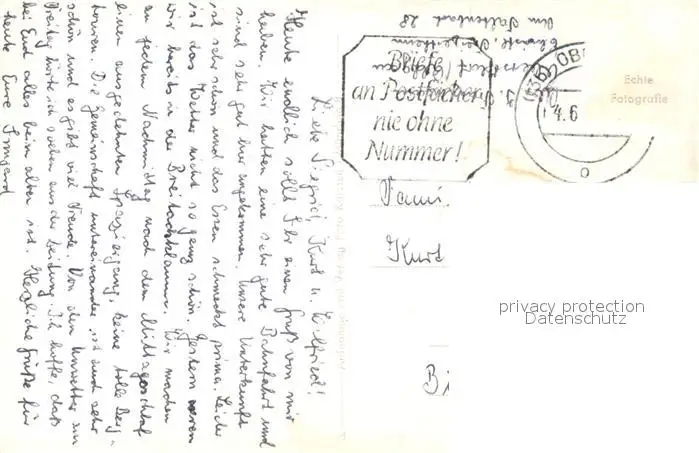 Liebe Siegrid, Kurt u. Zielfried!
Heute endlich sollt Ihr einen Gruß von mir
haben. Wir hatten eine sehr gute Bahnfahrt und
sind sehr gut hier angekommen. Unsere Unterkunft
ist sehr schön und das Essen schmeckt prima. Leider
ist das Wetter nicht so ganz schön. Gestern waren
wir bereits in der Breitachklamm. Wir machen
an jedem Nachmittag nach dem Mittagsschlaf
einen ausgedehnten Spaziergang, keine tolle Berg-
touren. Die Gemeinschaft untereinander ist auch sehr
schön und es gibt viel Freude. Von dem Unwetter am
Freitag hörte ich soeben aus der Zeitung. Ich hoffe, daß
bei Euch alles beim alten ist. Herzliche Grüße für
heute Eure Irmgard
Am Faltenbach 28
Briefe
an Postfächer
nie ohne
Nummer!
OB
4.6
Echte
Fotografie
Fami
Kurt
Bi
privacy protection
Datenschutz